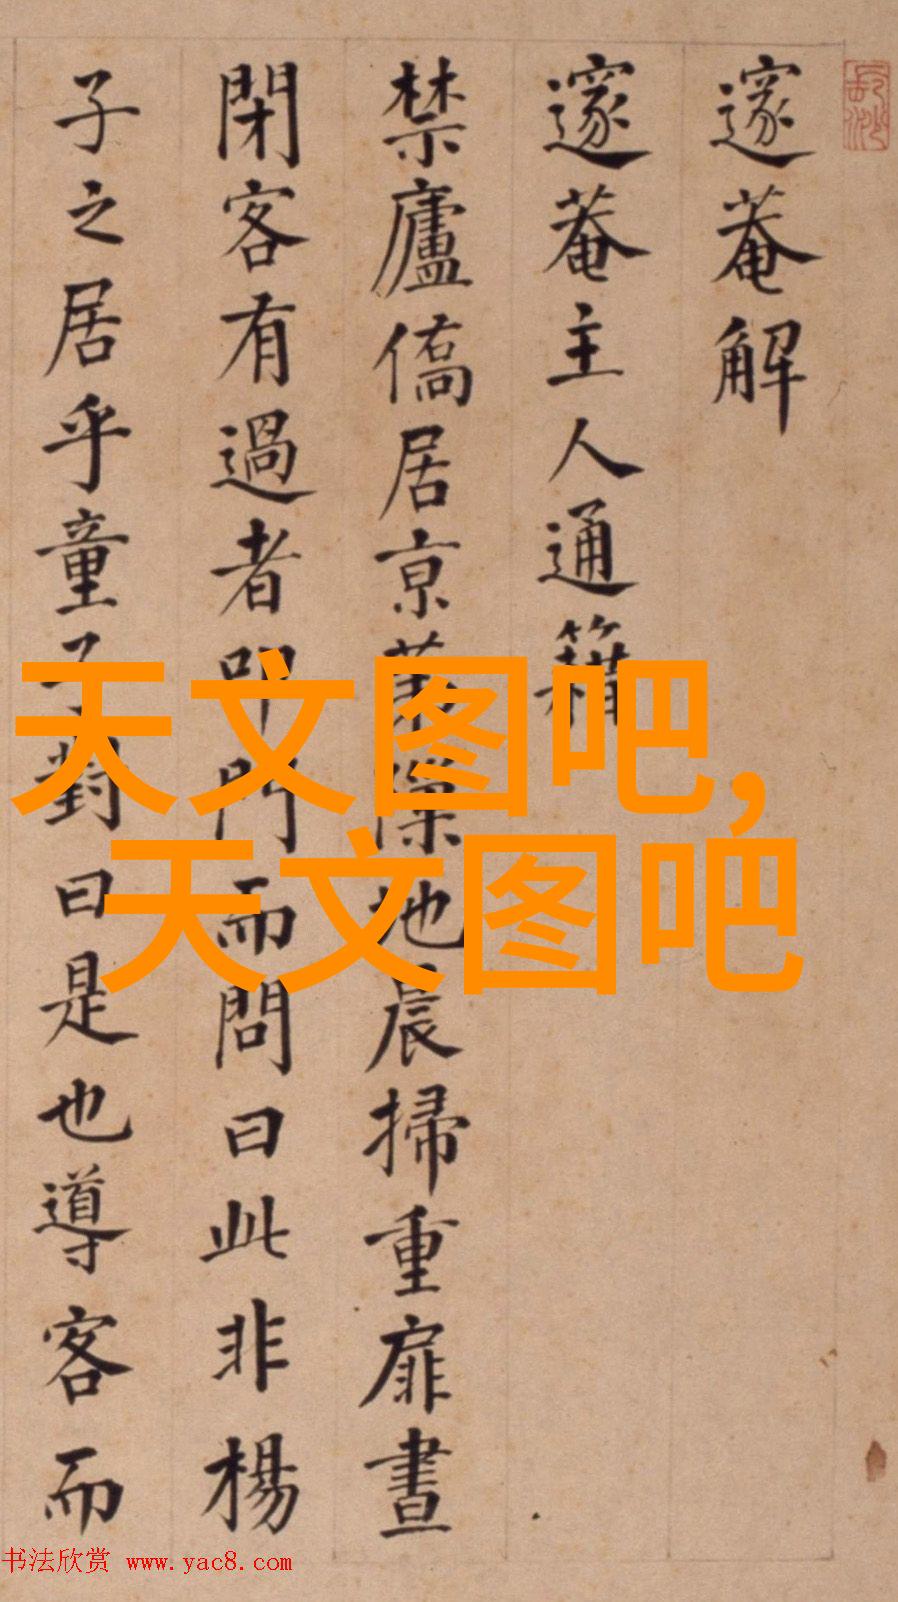 邃菴解
邃菴主人通籍
禁廬僑居京苐隙地晨掃重扉晝
閉客有過者叩門而問曰此非楊
子之居乎童子對曰是也導客而
天文图吧,
天文图吧
书法欣赏 www.yac8.com